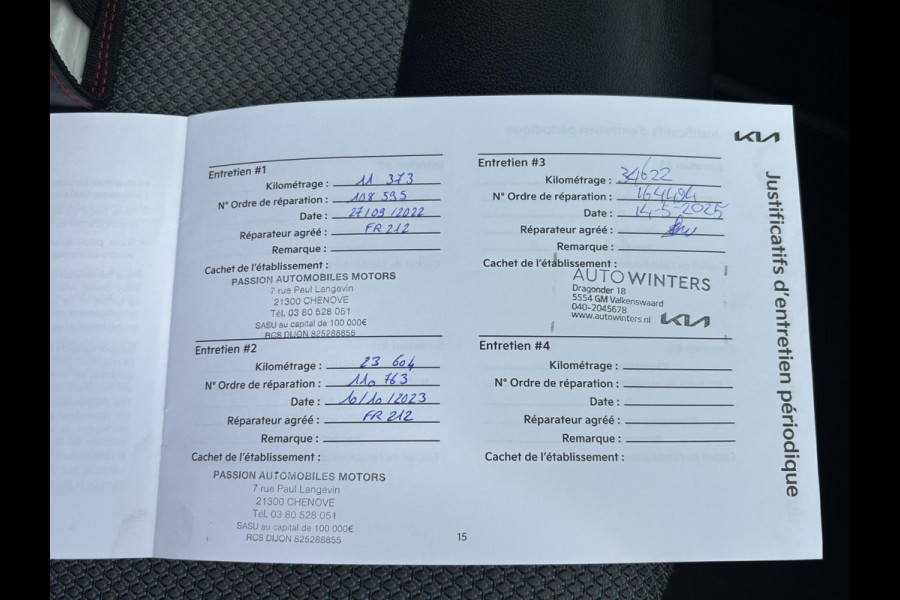 KIA
Justificatifs d'entretien périodique
Entretien #1
Kilométrage : 11 373
N° Ordre de réparation : 108 595
Date : 27/09/2022
Réparateur agréé : FR 212
Remarque :
Cachet de l'établissement :
PASSION AUTOMOBILES MOTORS
7 rue Paul Langevin
21300 CHENOVE
Tél. 03 80 528 051
SASU au capital de 100 000€
RCS DIJON 825288855
Entretien #2
Kilométrage : 23 604
N° Ordre de réparation : 110 763
Date : 10/10/2023
Réparateur agréé : FR 212
Remarque :
Cachet de l'établissement :
PASSION AUTOMOBILES MOTORS
7 rue Paul Langevin
21300 CHENOVE
Tél. 03 80 528 051
SASU au capital de 100 000€
RCS DIJON 825288855
Entretien #3
Kilométrage : 34622
N° Ordre de réparation : 164494
Date : 14-5-2025
Réparateur agréé :
Remarque :
Cachet de l'établissement :
AUTO WINTERS
Dragonder 18
5554 GM Valkenswaard
040-2045678
www.autowinters.nl KIA
Entretien #4
Kilométrage :
N° Ordre de réparation :
Date :
Réparateur agréé :
Remarque :
Cachet de l'établissement :
15